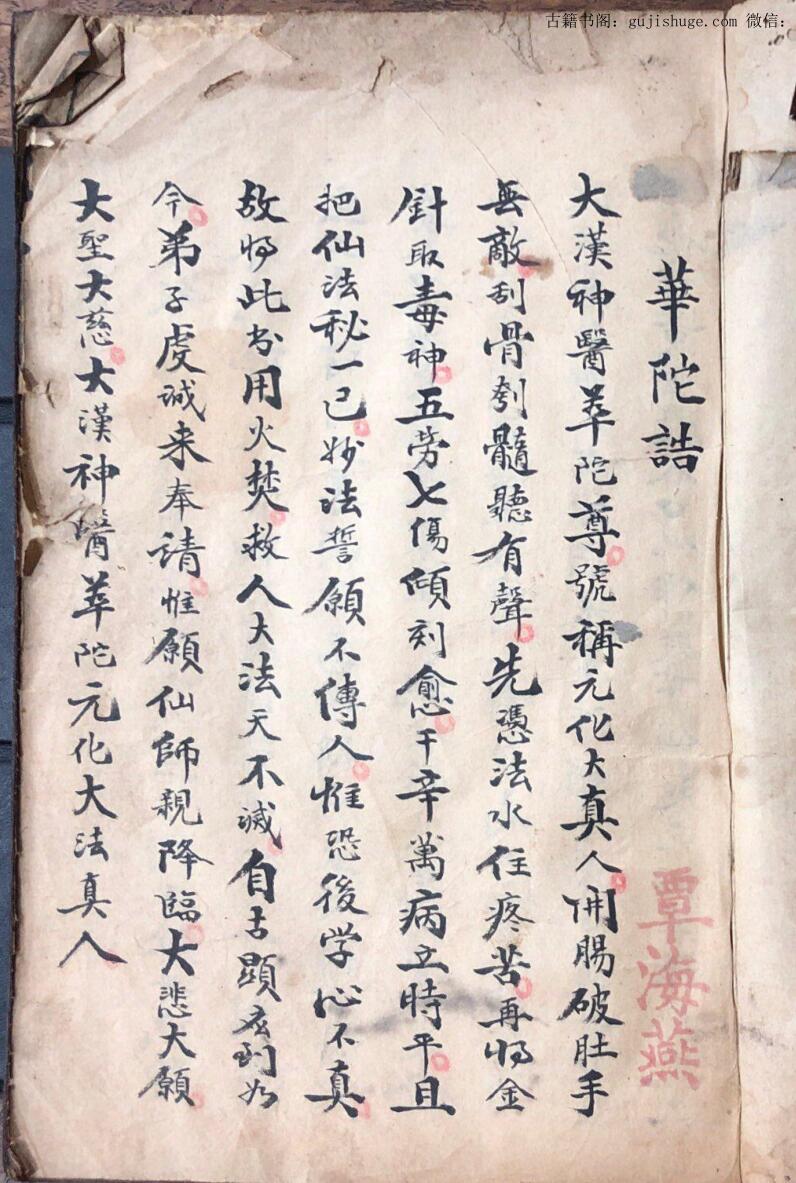 古籍书阁：gujishuge.com 微信：
華陀誥
覃海燕
大漢神醫華陀尊號稱元化大真人開腸破肚手
無敵刮骨刳髓聽有聲先憑法水住疼苦再将金
針取毒神五劳七傷傾刻愈千辛萬病立時平且
把仙法秘一己妙法誓願不傳人惟恐後学心不真
故将此书用火焚救人大法天不滅自古顕玄到如
今弟子虔誠来奉請惟願仙師親降臨大悲大願
大聖大慈大漢神醫華陀元化大法真人